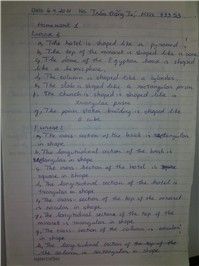 Homework 1
Exercise 1
a, The hotel is shaped like a pyramid.
b, The top of the minaret is shaped like a cone.
c, The dome of the Egyptian house is shaped
like a hemisphere.
d, The column is shaped like a cylinder.
e, The slab is shaped like a rectangular prism
f, The church is shaped like a
triangular prism
g, The police station building is shaped like
a cube
Exercise 2
a, The cross section of the brick is rectangular
in shape.
b, The longitudinal section of the brick is
rectangular in shape
c, The cross section of the hotel is
square in shape
d, The longitudinal section of the hotel is
triangular in shape.
e, The cross section of the top of the minaret
is circular in shape
f, The longitudinal section of the top of the
minaret is triangular in shape.
g, The cross section of the column is circular
in shape.
h, The longitudinal section of
the column is rectangular in shape